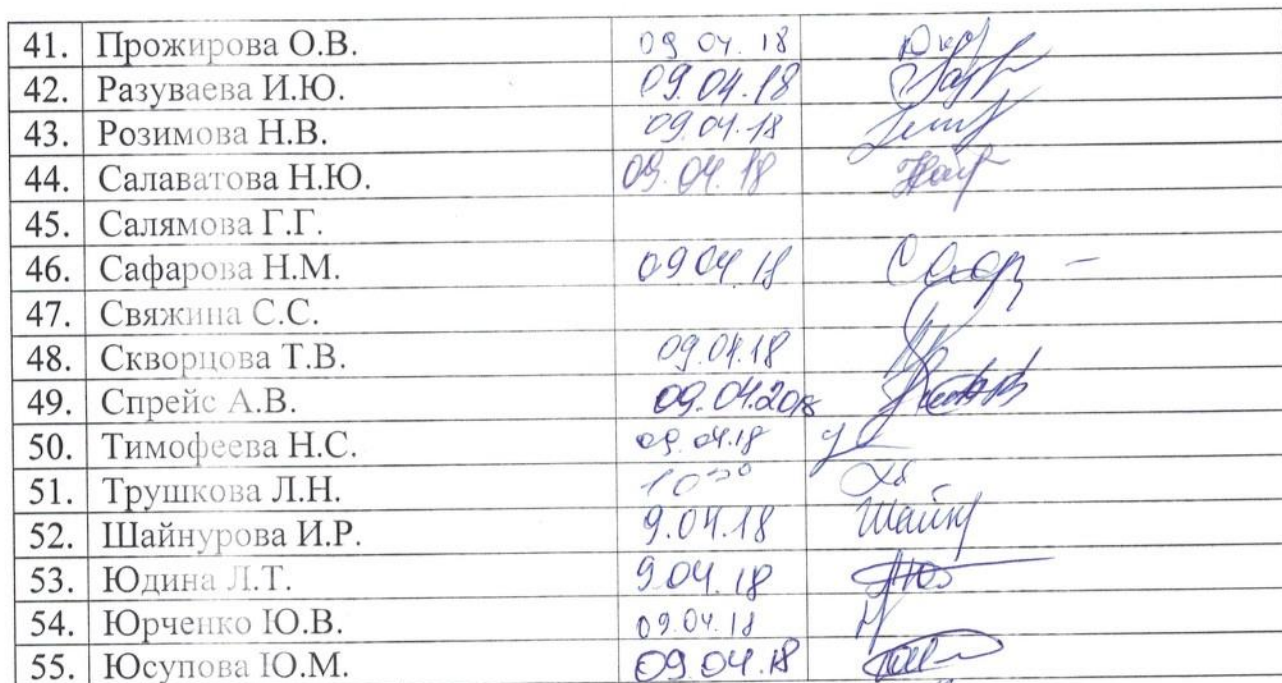 41. Прожирова О.В. 09 04. 18
42. Разуваева И.Ю. 09.04.18
43. Розимова Н.В. 09.04.18
44. Салаватова Н.Ю. 09.04.18
45. Салямова Г.Г.
46. Сафарова Н.М. 09 04 18
47. Свяжина С.С.
48. Скворцова Т.В. 09.04.18
49. Спрейс А.В. 09.04.2018
50. Тимофеева Н.С. 09.04.18
51. Трушкова Л.Н.
52. Шайнурова И.Р. 9.04.18
53. Юдина Л.Т. 9.04.18
54. Юрченко Ю.В. 09.04.18
55. Юсупова Ю.М. 09.04.18